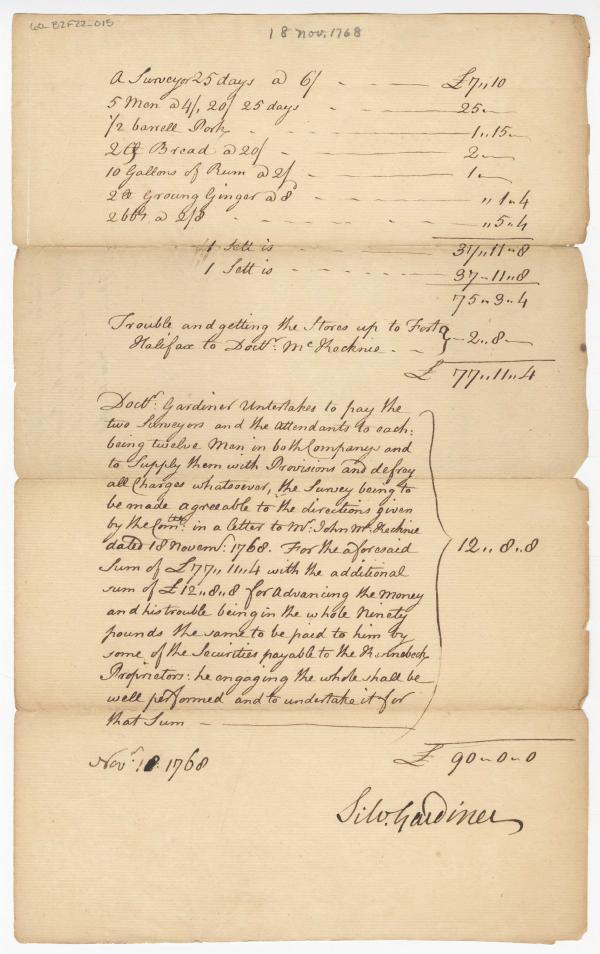 60-B2F22-015
18 Nov. 1768
A Surveyor 25 days a 6/ - - - £7,,10
5 Men a 4/, 20/ 25 days - 25 -
1/2 barrell Pork - - - - 1,,15 -
2 Ct Bread a 20/ - - - - 2 -
10 Gallons of Rum a 2/ - - - 1 -
2 lb Groung Ginger a 8d - - - ,, 1 ,, 4
2 a 2/8 - - - - ,, 5 ,, 4
1 Sett is - - - - 37,,11,,8
1 Sett is - - - - 37,,11,,8
75,,3,,4
Trouble and getting the Stores up to Fort
Halifax to Doctr. McKecknie - - } - 2,,8 -
£ 77,,11,,4
Doctr. Gardiner Undertakes to pay the
two Surveyors and the attendants to each:
being twelve Men in both Companys and
to Supply them with Provisions and defray
all Charges whatsoever, the Survey being to
be made agreeable to the directions given
by the Comttee. in a letter to Mr. John McKecknie
dated 18 Novemr. 1768. For the aforesaid
Sum of £77,,11,,4 with the additional
sum of £12,,8,,8 for advancing the Money
and his trouble being in the whole Ninety
pounds the same to be paid to him by
some of the Securities payable to the Kennebeck
Proprietors: he engaging the whole shall be
well performed and to undertake it for
that Sum -
12,,8,,8
Novr. 18. 1768
£ 90-0-0
Silv. Gardiner